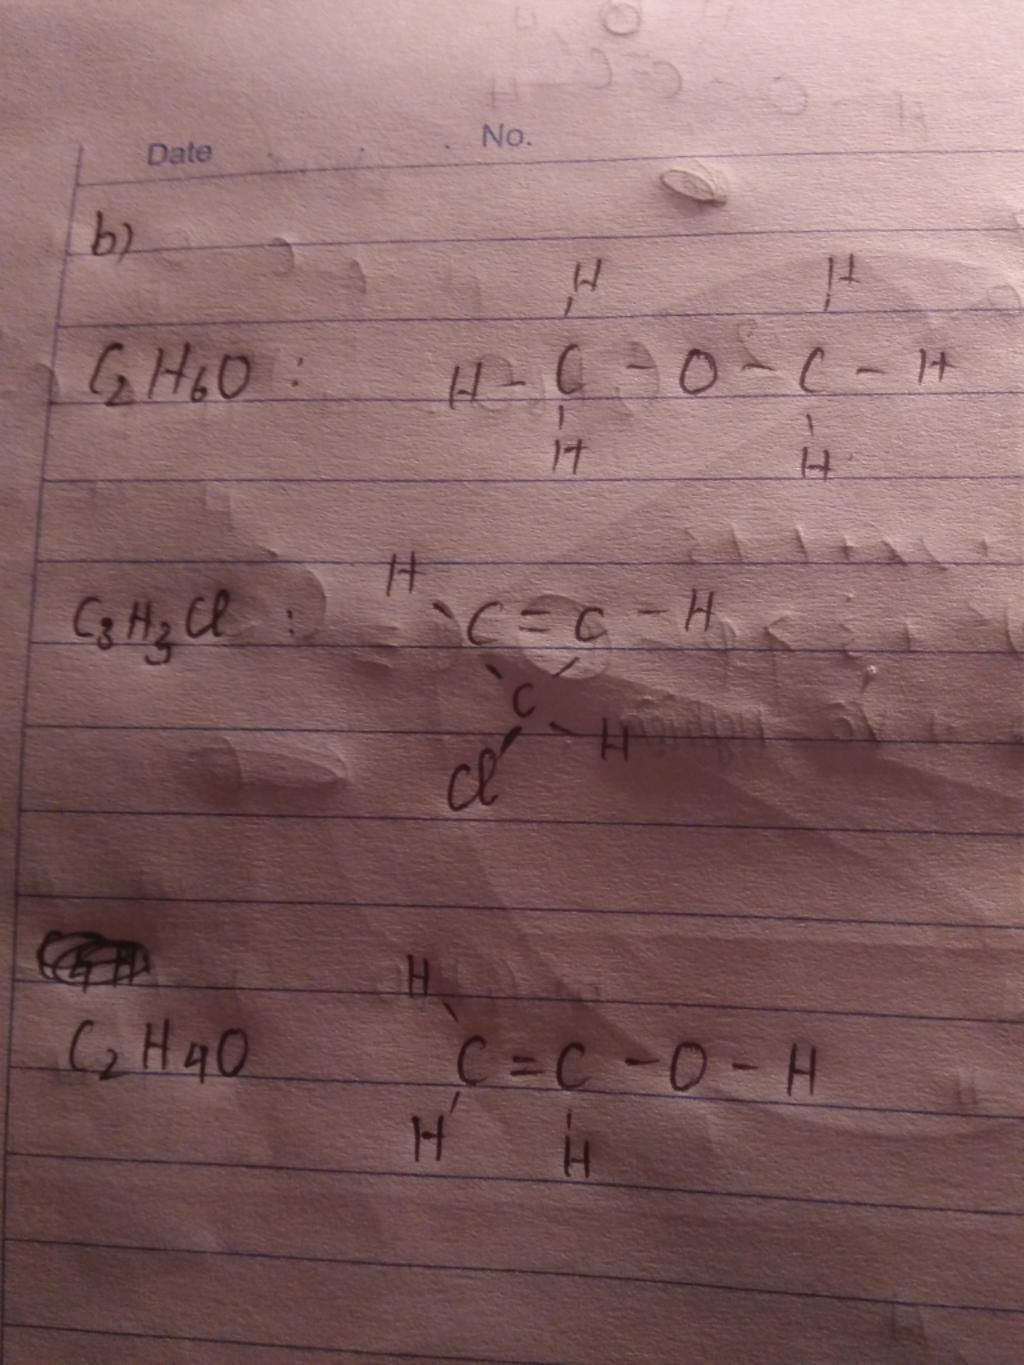 Date No.
b)
H H
C2H6O : H - C - O - C - H
H H
H
C3H3Cl : C = C - H
C
H
Cl
H
C2H4O C = C - O - H
H H